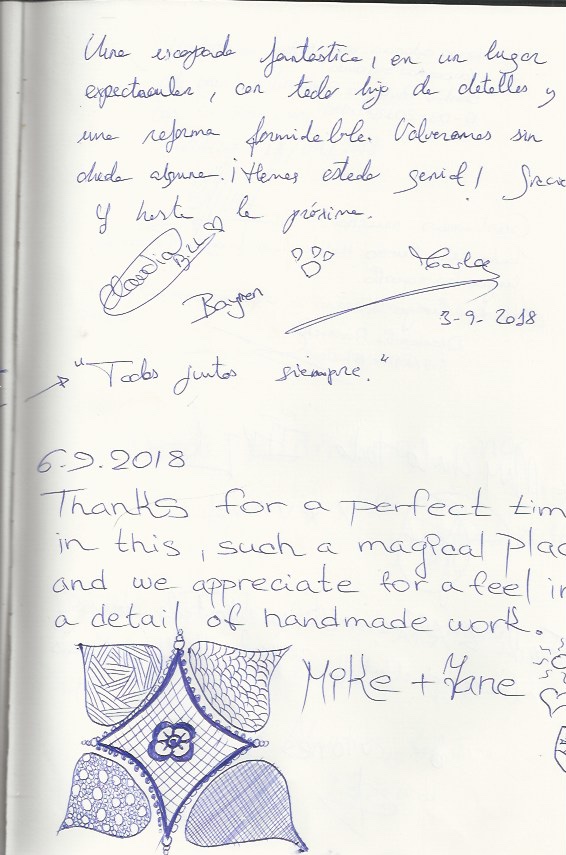 Una escapada fantástica, en un lugar
espectacular, con todo lujo de detalles y
una reforma formidable. Volveremos sin
duda alguna. ¡Hemos estado genial! Gracia
Y hasta la próxima.
Claudia
Baymen
Carlos
3-9-2018
"Todos juntos siempre."
6.9.2018
Thanks for a perfect tim
in this, such a magical plac
and we appreciate for a feel in
a detail of handmade work.
Mike + Jane